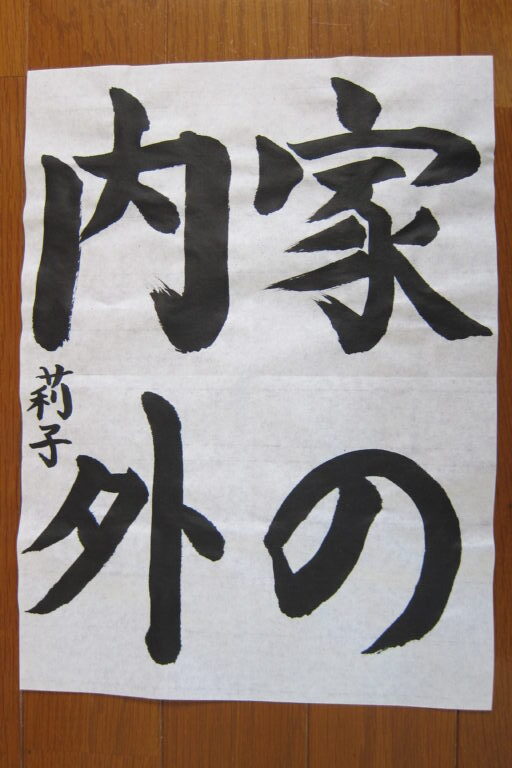 家の
内外
莉子